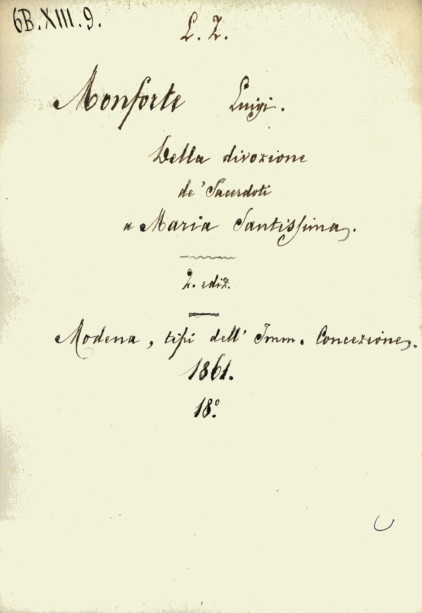 6B.XIII.9.
L. Z.
Monforte Luigi.
Della divozione
de' Sacerdoti
a Maria Santissima.
2. ediz.
Modena, tipi dell' Imm. Concezione.
1861.
18.°